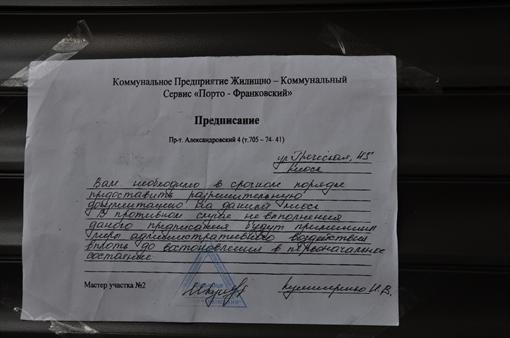 Коммунальное Предприятие Жилищно – Коммунальный
Сервис «Порто - Франковский»
Предписание
Пр-т. Александровский 4 (т.705 – 74- 41)
ул. Греческая, 45
киоск
Вам необходимо в срочном порядке
предоставить разрешительную
документацию на данный киоск
В противном случае не выполнения
данного предписания будут приняты
меры административного воздействия
вплоть до востановления в первоначальное
состояние
Мастер участка №2